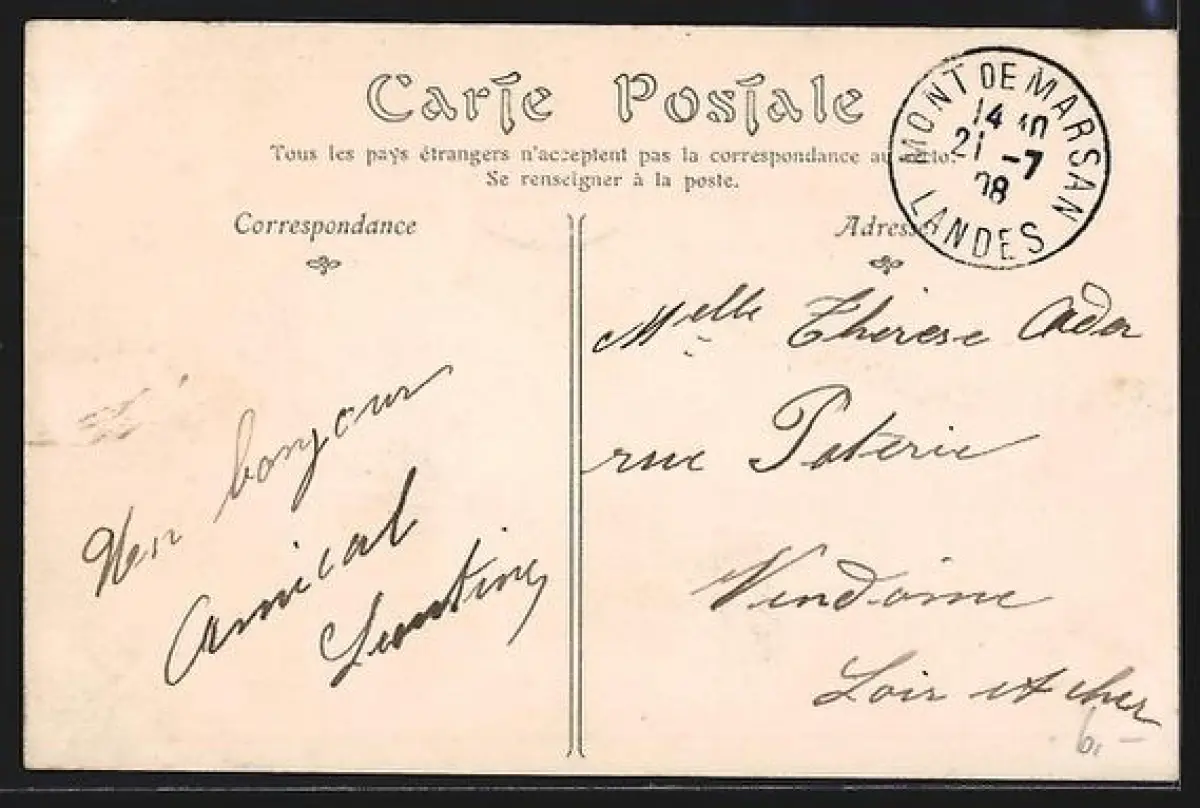 Carte Postale
Tous les pays étrangers n'acceptent pas la correspondance au recto.
Se renseigner à la poste.
MONT DE MARSAN
14 10
21 -7
08
LANDES
Correspondance
Adresse
bonjour
amical
Melle Thérèse Ader
rue Poterie
Vendôme
Loir et cher